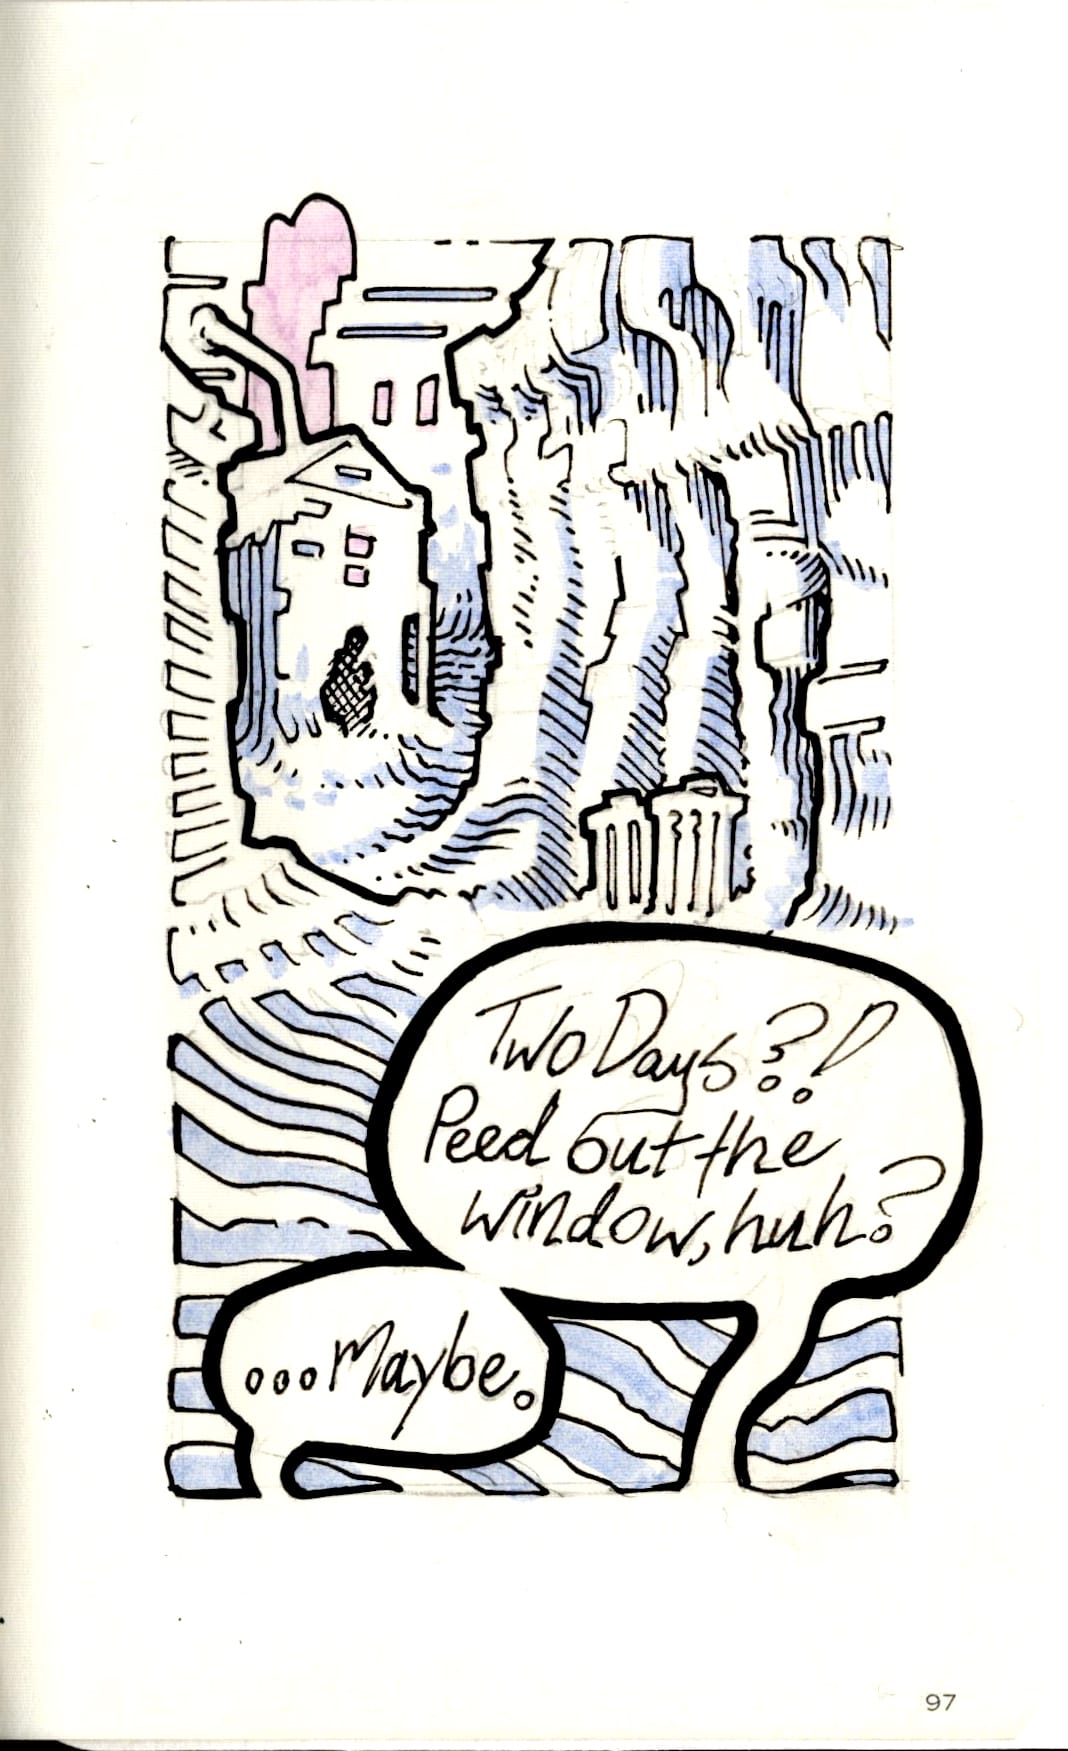 Two Days?!
Peed out the
window, huh?
...Maybe.
97